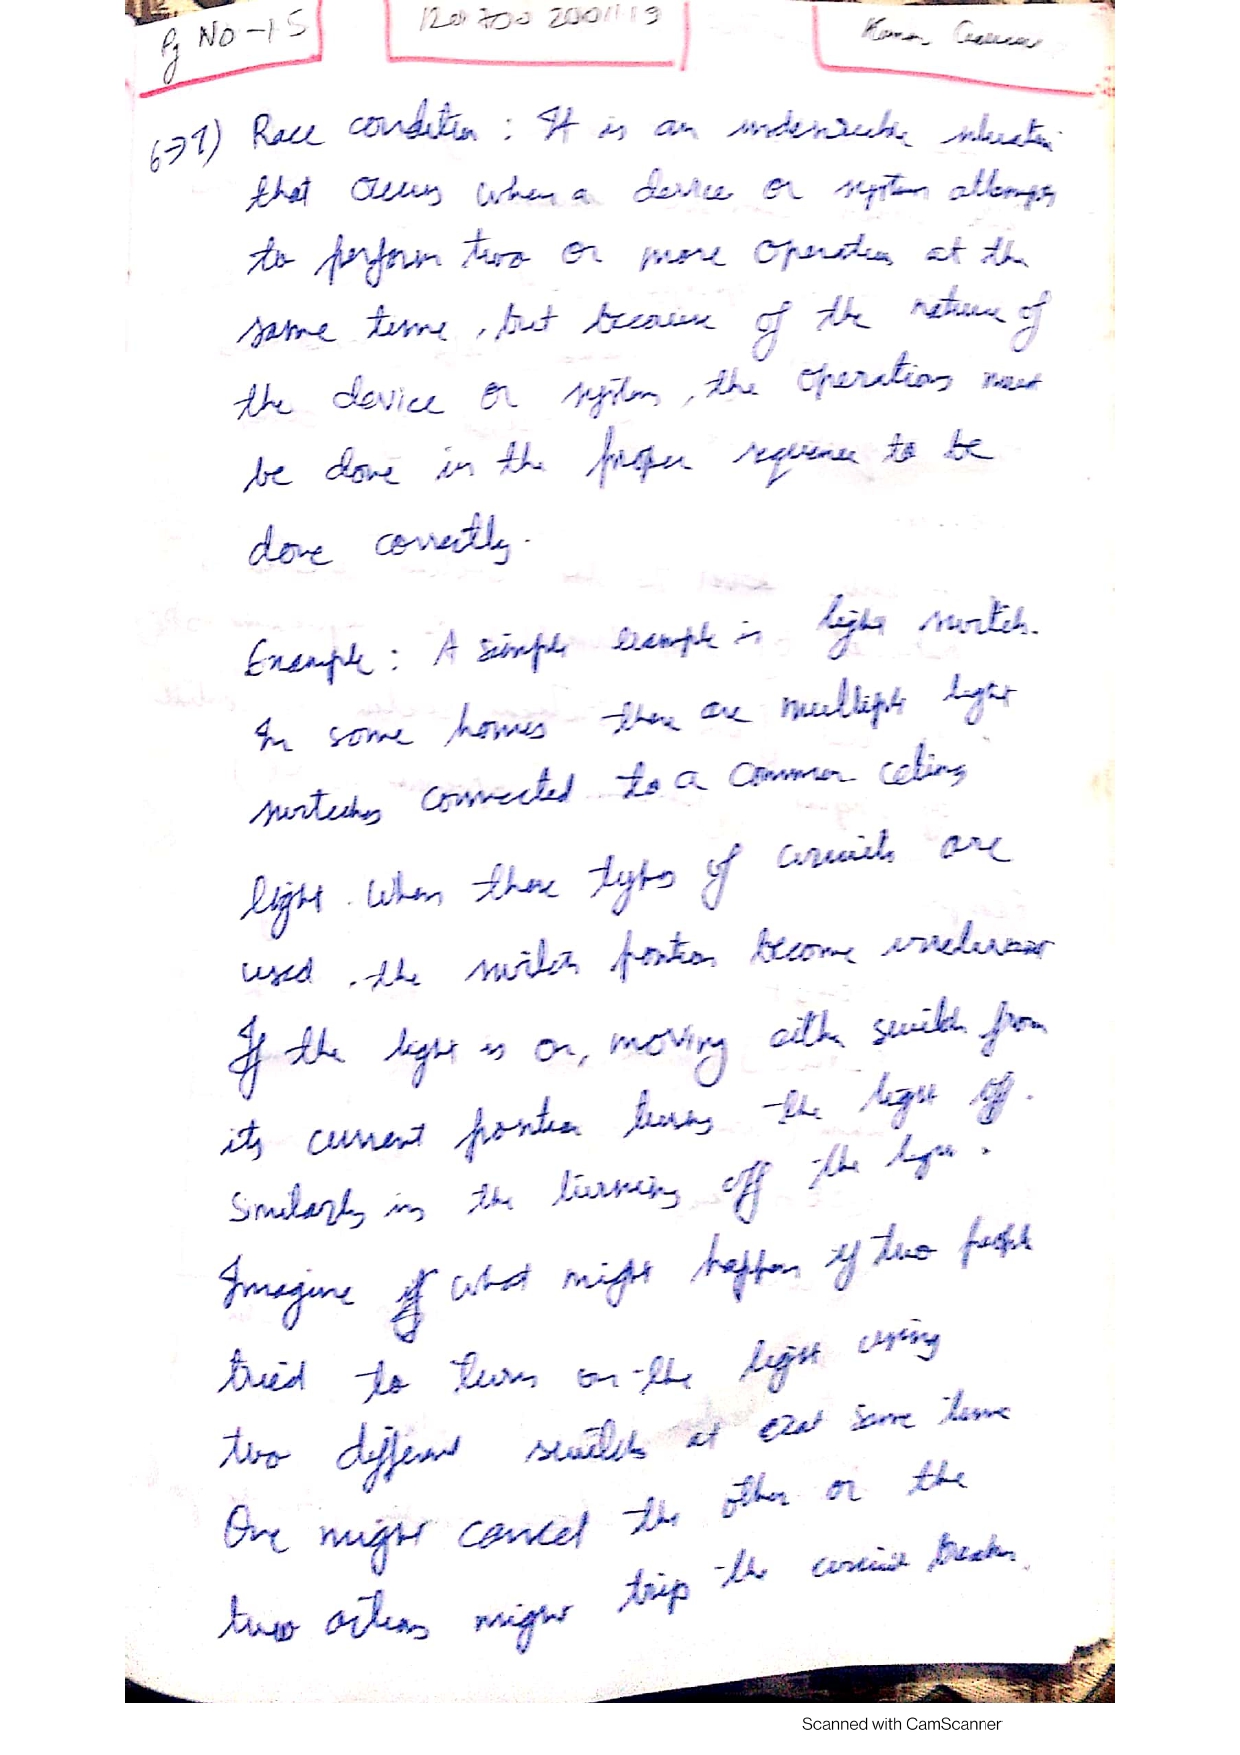 Pg No-15
Race condition : It is an undesirable situation
that occurs when a device or system attempts
to perform two or more operation at the
same time, but because of the nature of
the device or system, the operations must
be done in the proper sequence to be
done correctly.
Example : A simple example is light switch.
In some homes there are multiple light
switches connected to a common ceiling
light. When these types of circuits are
used, the switch position become irrelevant
If the light is on, moving either switch from
its current position turns the light off.
Similarly in the turning off the light.
Imagine if what might happen if two people
tried to turn on the light using
two different switch at exat same time
One might cancel the other or the
two actions might trip the circuit breaker.
Scanned with CamScanner